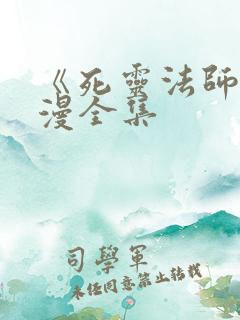 《死靈法師
漫全集
司學軍
未經同意禁止轉載